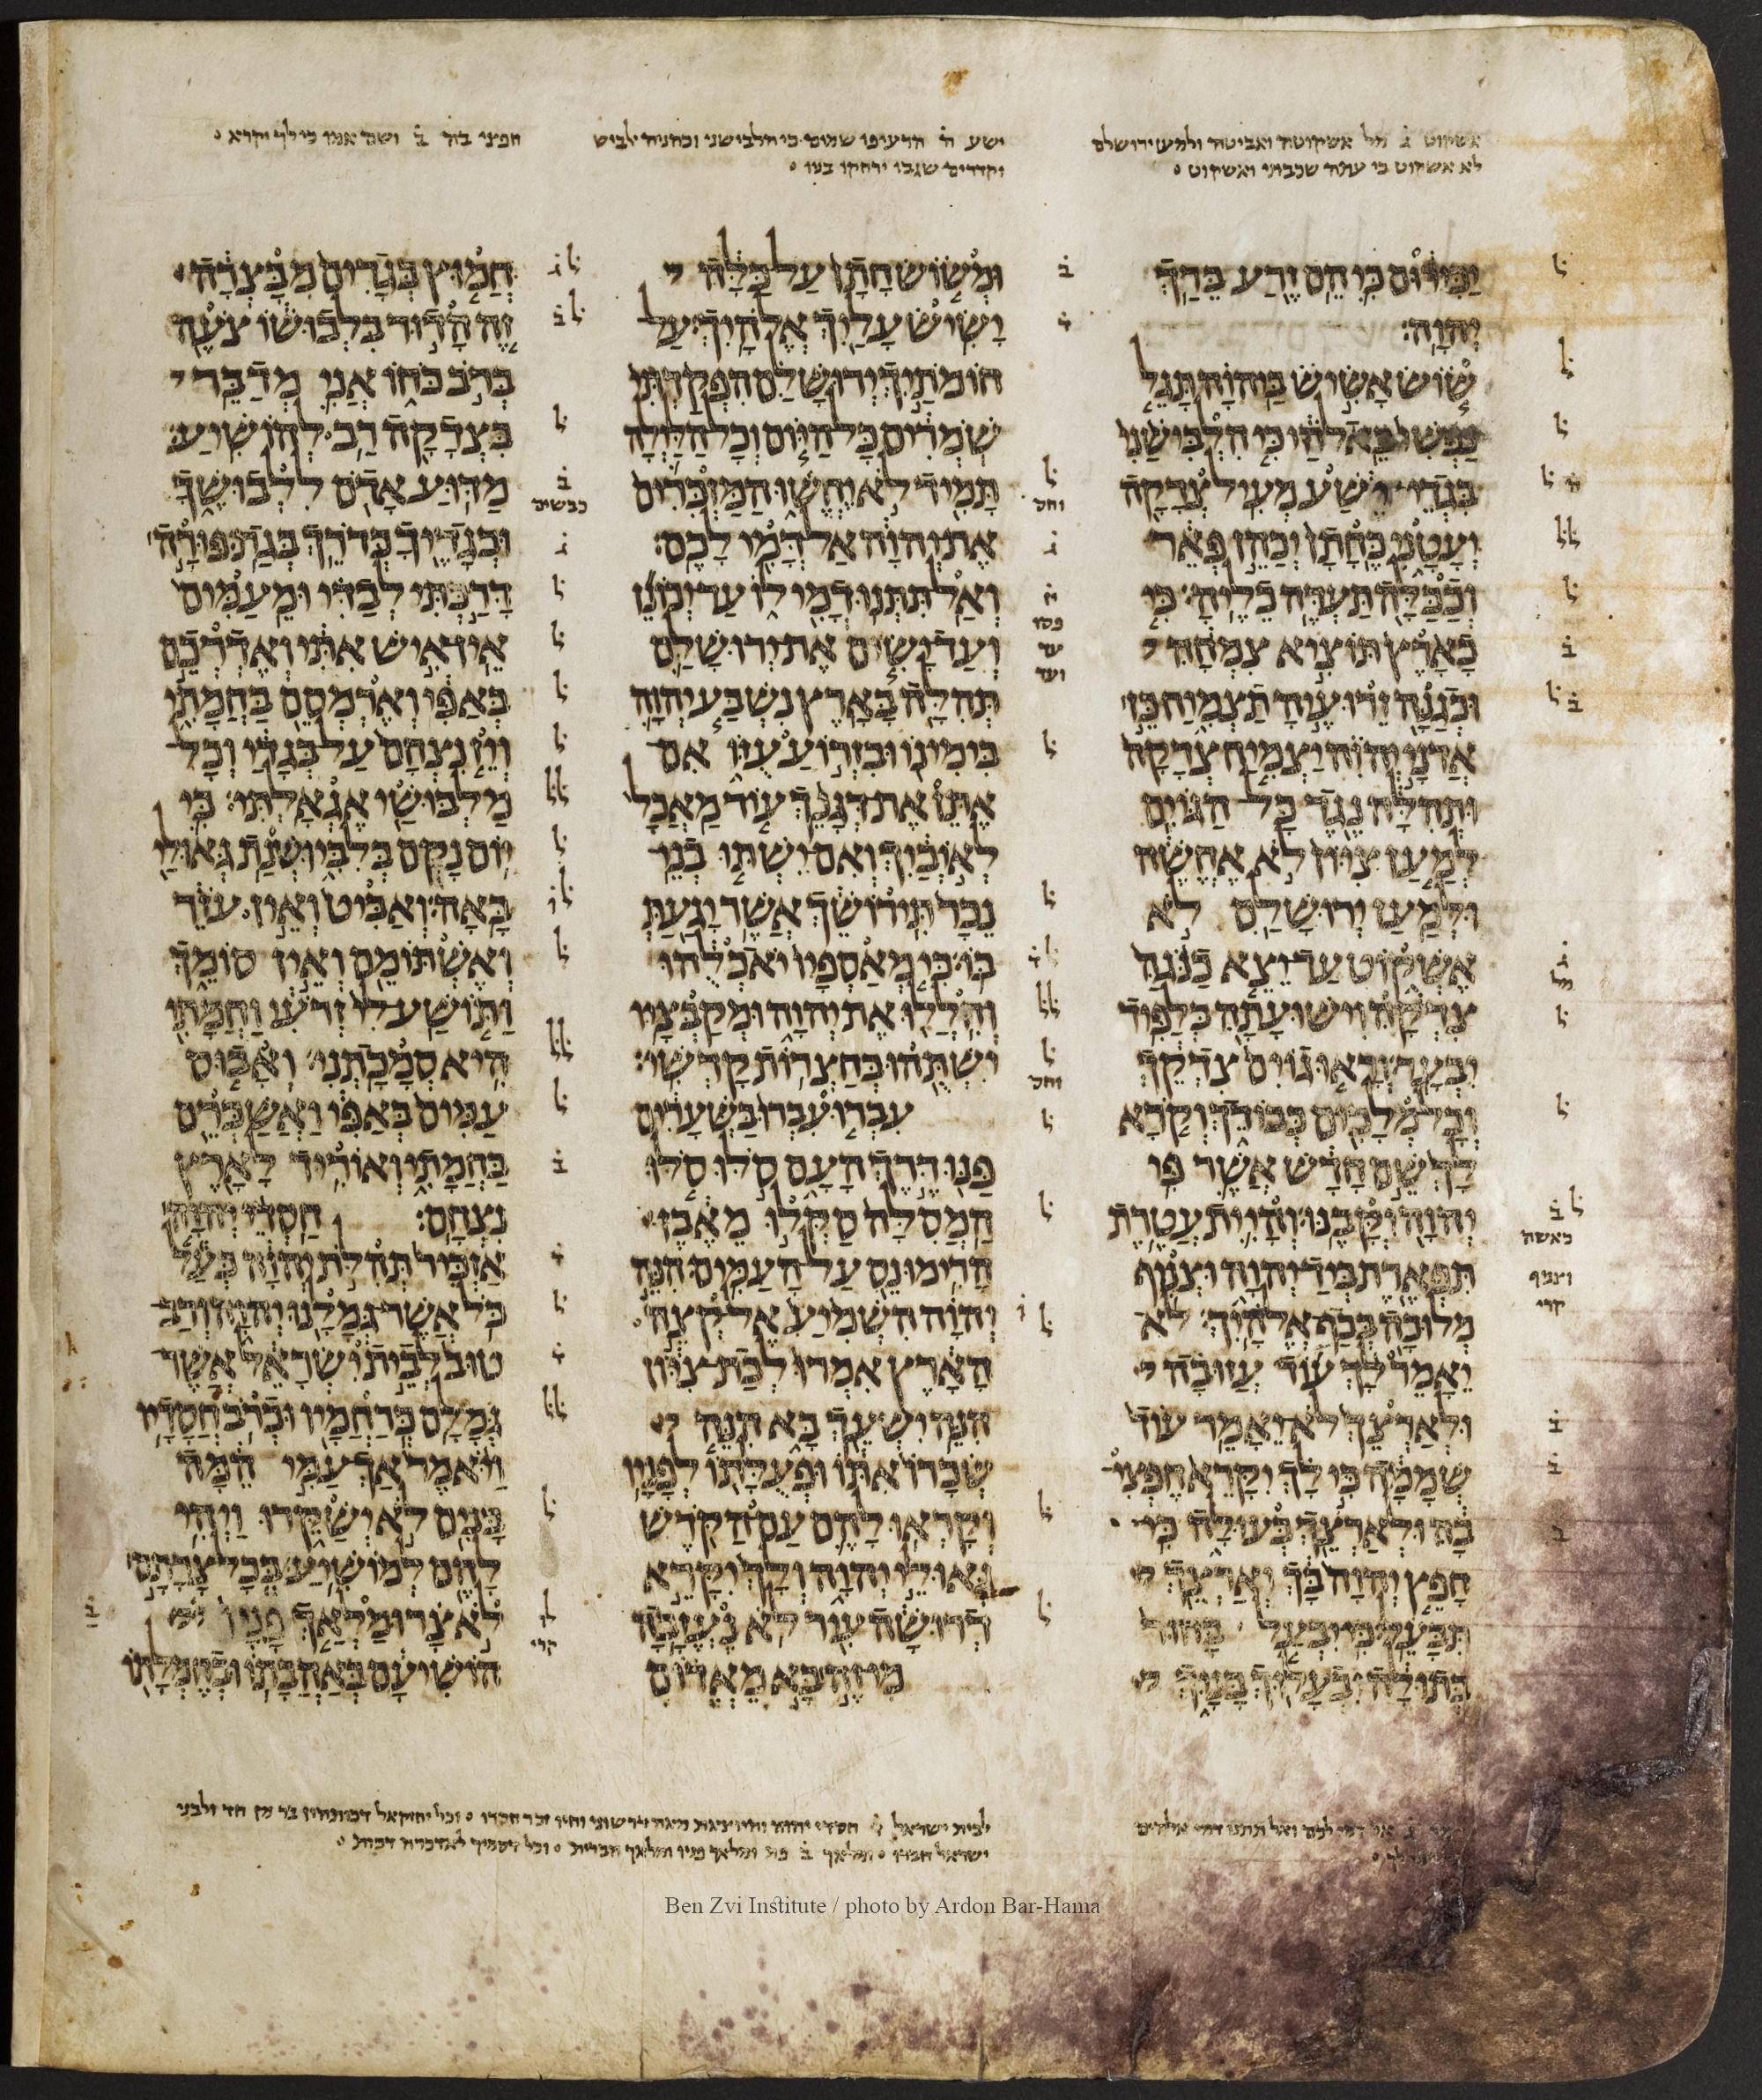 אשקוט ג̇ אשקוטה ואביטה ולמען ירושלם
לא אשקוט כי עתה שכבתי ואשקוט
ישע ה̇ הרעיפו שמים כי הלבישני וכהניה ילביש
וקדרים שגבו ירחקו בניו
חפצי בה ב̇ ושם אמו כי לך יקרא
יכירום כי הם זרע ברך
יהוה׃
שוש אשיש ביהוה תגל
נפשי באלהי כי הלבישני
בגדי ישע מעיל צדקה
יעטני כחתן יכהן פאר
וככלה תעדה כליה׃ כי
כארץ תוציא צמחה
וכגנה זרועיה תצמיח כן
אדני יהוה יצמיח צדקה
ותהלה נגד כל הגוים׃
למען ציון לא אחשה
ולמען ירושלם לא
אשקוט עד יצא כנגה
צדקה וישועתה כלפיד
יבער׃ וראו גוים צדקך
וכל מלכים כבודך וקרא
לך שם חדש אשר פי
יהוה יקבנו׃ והיית עטרת
תפארת ביד יהוה וצנוף
מלוכה בכף אלהיך׃ לא
יאמר לך עוד עזובה
ולארצך לא יאמר עוד
שממה כי לך יקרא חפצי
בה ולארצך בעולה כי
חפץ יהוה בך וארצך
תבעל׃ כי יבעל בחור
בתולה יבעלוך בניך
ומשוש חתן על כלה
ישיש עליך אלהיך׃ על
חומתיך ירושלם הפקדתי
שמרים כל היום וכל הלילה
תמיד לא יחשו המזכרים
את יהוה אל דמי לכם׃
ואל תתנו דמי לו עד יכונן
ועד ישים את ירושלם
תהלה בארץ׃ נשבע יהוה
בימינו ובזרוע עזו אם
אתן את דגנך עוד מאכל
לאיביך ואם ישתו בני
נכר תירושך אשר יגעת
בו׃ כי מאספיו יאכלהו
והללו את יהוה ומקבציו
ישתהו בחצרות קדשי׃
עברו עברו בשערים
פנו דרך העם סלו סלו
המסלה סקלו מאבן
הרימו נס על העמים׃ הנה
יהוה השמיע אל קצה
הארץ אמרו לבת ציון
הנה ישעך בא הנה
שכרו אתו ופעלתו לפניו׃
וקראו להם עם הקדש
גאולי יהוה ולך יקרא
דרושה עיר לא נעזבה׃
מי זה בא מאדום
חמוץ בגדים מבצרה
זה הדור בלבושו צעה
ברב כחו אני מדבר
בצדקה רב להושיע׃
מדוע אדם ללבושך
ובגדיך כדרך בגת׃ פורה
דרכתי לבדי ומעמים
אין איש אתי ואדרכם
באפי וארמסם בחמתי
ויז נצחם על בגדי וכל
מלבושי אגאלתי׃ כי
יום נקם בלבי ושנת גאולי
באה׃ ואביט ואין עזר
ואשתומם ואין סומך
ותושע לי זרעי וחמתי
היא סמכתני׃ ואבוס
עמים באפי ואשכרם
בחמתי ואוריד לארץ
נצחם׃ חסדי יהוה
אזכיר תהלת יהוה כעל
כל אשר גמלנו יהוה ורב
טוב לבית ישראל אשר
גמלם כרחמיו וכרב חסדיו׃
ויאמר אך עמי המה
בנים לא ישקרו ויהי
להם למושיע׃ בכל צרתם
לא צר ומלאך פניו
הושיעם באהבתו ובחמלתו
אל דמי לכם ואל תתנו דמי
לבית ישראל חסדי יהוה
Ben Zvi Institute / photo by Ardon Bar-Hama